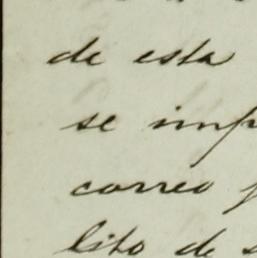 de esta
se imp
correo
lito de